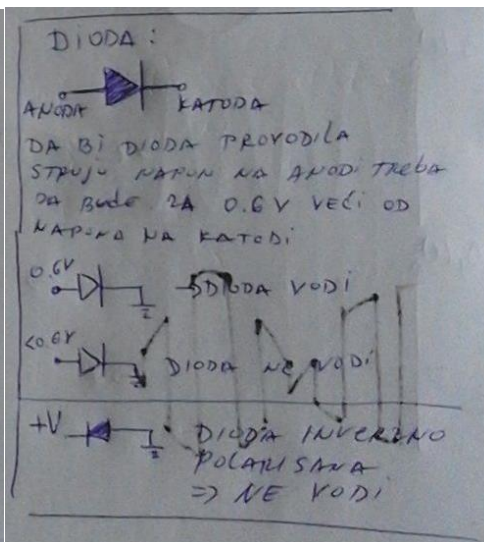 DIODA:
ANODA KATODA
DA BI DIODA PROVODILA
STRUJU NAPON NA ANODI TREBA
DA BUDE ZA 0.6V VEĆI OD
NAPONA NA KATODI
0.6V DIODA VODI
<0.6V DIODA NE VODI
+V DIODA INVERZNO
POLARISANA
=> NE VODI